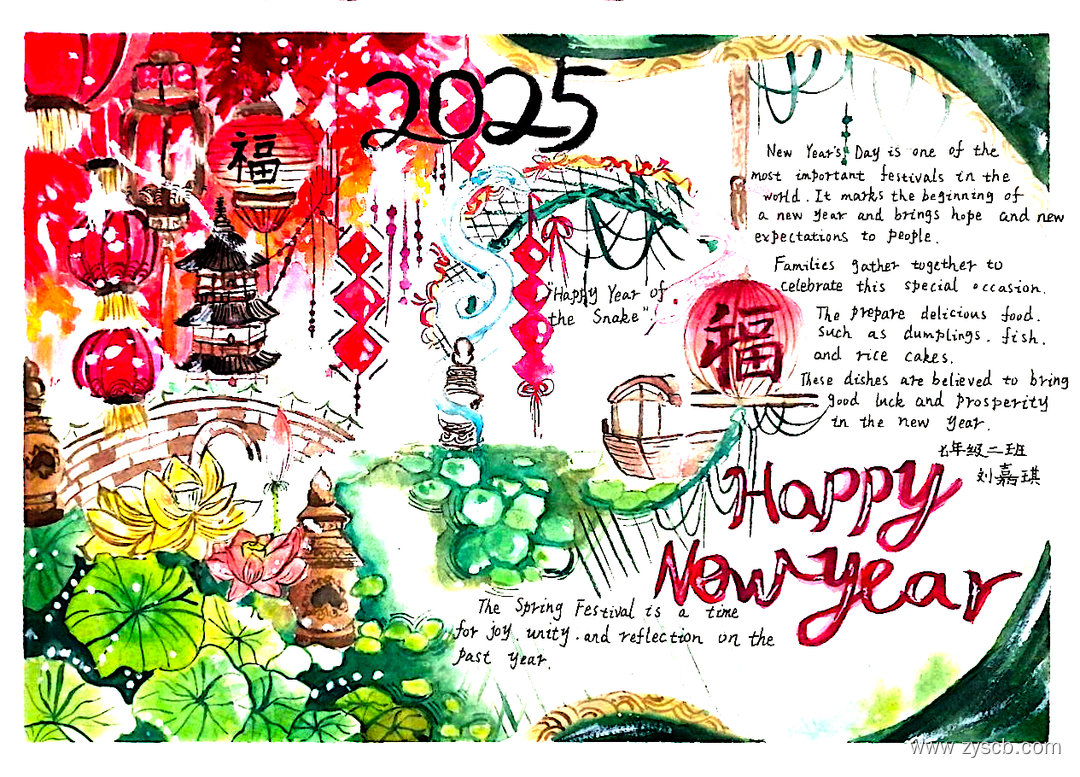 2025
福
New Year's Day is one of the
most important festivals in the
world. It marks the beginning of
a new year and brings hope and new
expectations to people.
Families gather together to
celebrate this special occasion.
The prepare delicious food.
such as dumplings. fish.
and rice cakes.
These dishes are believed to bring
good luck and prosperity
in the new year.
七年级二班
刘嘉琪
"Happy Year of
the Snake"
福
Happy
New year
The Spring Festival is a time
for joy. unity. and reflection on the
past year.
www.zyscb.com